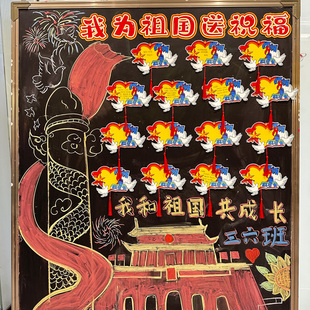 我为祖国送祝福
我和祖国共成长
三六班